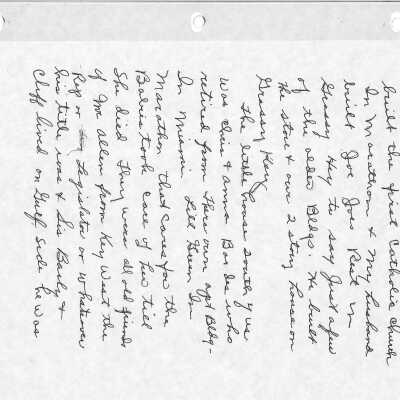 built the first Catholic Church
In Marathon & My husband
built Joe Joes Rest in
Grassy Key to say Just a few
of the older Bldgs. He built
the store & our 2 story house on
Grassy Key
The little house South of us
was Clair & Anna Bodes who
retired from there own apt Bldg-
In Miami. Lill Guen In
Marathon that cares for the
Babies took care of him till
She died they were all old friends
of Mr Allen from Key West the
Rep or Legislator or whatever
his title was & Sis Barly &
Cliff lived on Gulf Side he was